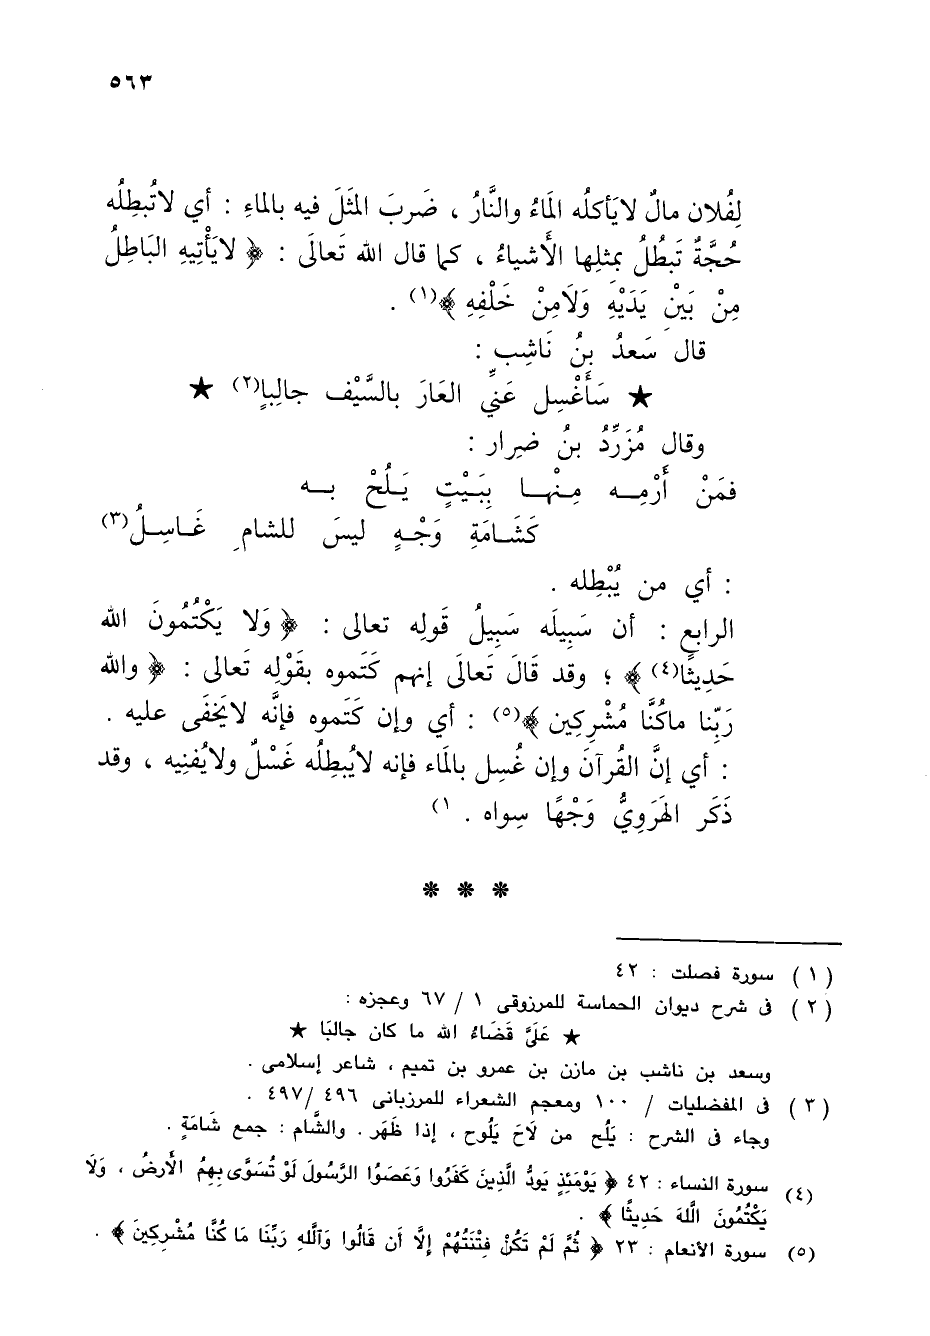 ٥٦٣
لِفُلان مالٌ لايَأكلُه الماءُ والنَّارُ ، ضَربَ المثَلَ فيه بالماءِ : أي لاتُبطِلُه
حُجَّةٌ تَبطُلُ بمثلِها الأَشياءُ ، كما قال الله تَعالَى : ﴿ لايَأْتِيهِ البَاطِلُ
مِنْ بَيْنِ يَدَيْهِ وَلَامِنْ خَلْفِهِ ﴾(١) .
قال سَعدُ بنُ نَاشِبٍ :
★ سَأَغْسِل عَنِّي العَارَ بالسَّيْف جالِبًا(٢) ★
وقال مُزَرِّدُ بنُ ضِرار :
فمَنْ أَرْمِـــه مِـنْهــا بِبَـيْتٍ يَــلُحْ بـــه
كَشَــامَةِ وَجْــهٍ ليسَ للشام غَــاسِـلُ(٣)
: أي من يُبْطِله .
الرابع : أن سَبِيلَه سَبِيلُ قَولِه تعالى : ﴿ وَلا يَكْتُمُونَ الله
حَدِيثًا(٤) ﴾ ؛ وقد قَالَ تَعالَى إنهم كَتَموه بقَوْلِه تَعالى : ﴿ والله
رَبِّنا ماكُنَّا مُشْرِكِين ﴾(٥) : أي وإن كَتَموه فإنَّه لايَخفَى عليه .
: أي إنَّ القُرآنَ وإن غُسِل بالماء فإنه لايُبطِلُه غَسْلٌ ولايُفنِيه ، وقد
ذَكَر الهَرَوِيُّ وَجْهًا سِواه . ١)
* * *
(١) سورة فصلت : ٤٢
(٢) فى شرح ديوان الحماسة للمرزوقى ١ / ٦٧ وعجزه :
★ عَلَيَّ قَضَاءُ الله ما كان جالبَا ★
وسعد بن ناشب بن مازن بن عمرو بن تميم ، شاعر إسلامى .
(٣) فى المفضليات / ١٠٠ ومعجم الشعراء للمرزبانى ٤٩٦ /٤٩٧ .
وجاء فى الشرح : يَلُح من لَاحَ يَلُوح ، إذا ظَهَر . والشَّام : جمع شَامَةٍ .
(٤) سورة النساء : ٤٢ ﴿ يَوْمَئِذٍ يَودُّ الَّذِينَ كَفَرُوا وَعَصَوُا الرَّسُولَ لَوْ تُسَوَّى بِهِمُ الأَرضُ ، وَلَا
يَكْتُمُونَ اللَّهَ حَدِيثًا ﴾ .
(٥) سورة الأنعام : ٢٣ ﴿ ثُمَّ لَمْ تَكُنْ فِتْنَتُهُمْ إِلَّا أَن قَالُوا وَاللَّهِ رَبِّنَا مَا كُنَّا مُشْرِكِينَ ﴾ .